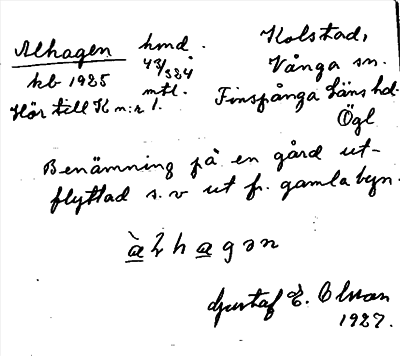 Alhagen hmd.
43/384
kb 1925 mtl.
Hör till K n:r 1.
Kolstad,
Vånga sn.
Finspånga läns hd.
Ögl
Benämning på en gård ut-
flyttad s.v ut fr. gamla byn.
Gustaf E. Olsson
1927.